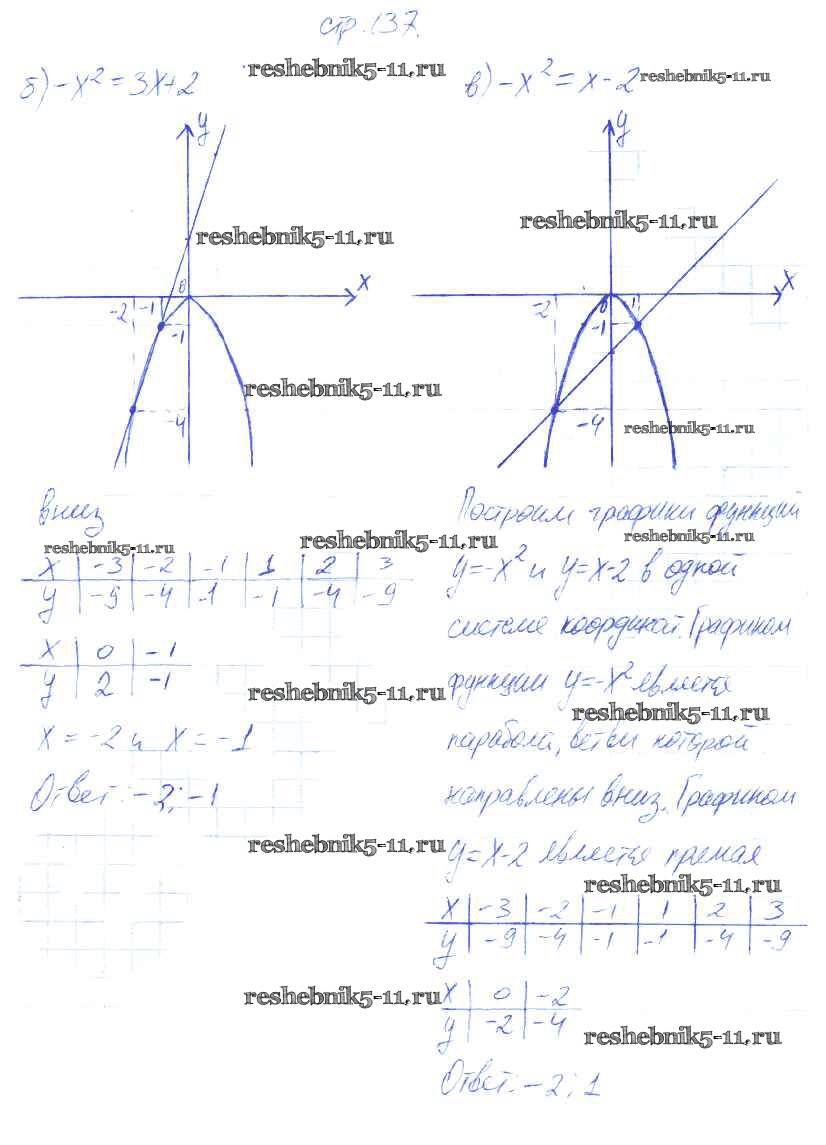 стр. 137.
reshebnik5-11.ru
б) -x² = 3x+2
в) -x² = x-2
reshebnik5-11.ru
y
x
0
-2
-1
-1
-4
reshebnik5-11.ru
reshebnik5-11.ru
y
x
0
-2
1
-1
-4
reshebnik5-11.ru
reshebnik5-11.ru
вниз
reshebnik5-11.ru
reshebnik5-11.ru
x | -3 | -2 | -1 | 1 | 2 | 3
y | -9 | -4 | -1 | -1 | -4 | -9
x | 0 | -1
y | 2 | -1
reshebnik5-11.ru
x = -2 и x = -1
Ответ: -2; -1
reshebnik5-11.ru
reshebnik5-11.ru
Построим графики функций
reshebnik5-11.ru
y=-x² и y=x-2 в одной
системе координат. Графиком
функции y=-x² является
reshebnik5-11.ru
парабола, ветви которой
направлены вниз. Графиком
y=x-2 является прямая
reshebnik5-11.ru
x | -3 | -2 | -1 | 1 | 2 | 3
y | -9 | -4 | -1 | -1 | -4 | -9
x | 0 | -2
y | -2 | -4
reshebnik5-11.ru
Ответ: -2; 1